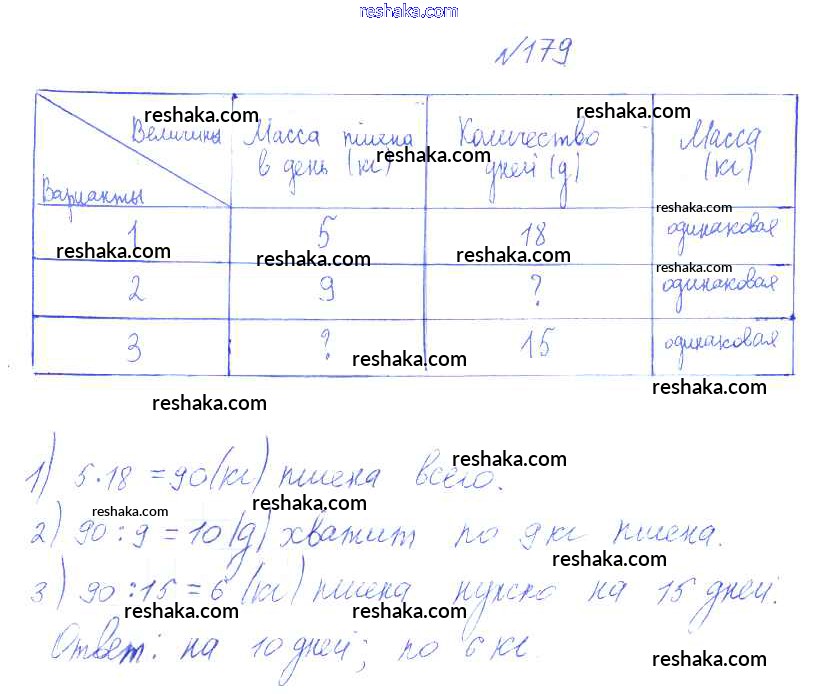 reshaka.com
№179
reshaka.com reshaka.com
Величины Масса пшена Количество Масса
reshaka.com
в день (кг) дней (д) (кг)
Варианты reshaka.com
1 5 18 одинаковая
reshaka.com reshaka.com reshaka.com
reshaka.com
2 9 ? одинаковая
3 ? 15 одинаковая
reshaka.com
reshaka.com
reshaka.com
reshaka.com
1) 5·18 =90(кг) пшена всего.
reshaka.com
2) 90:9=10(д) хватит по 9 кг пшена.
reshaka.com
3) 90:15=6 (кг) пшена нужно на 15 дней.
reshaka.com reshaka.com
Ответ: на 10 дней; по 6 кг.
reshaka.com